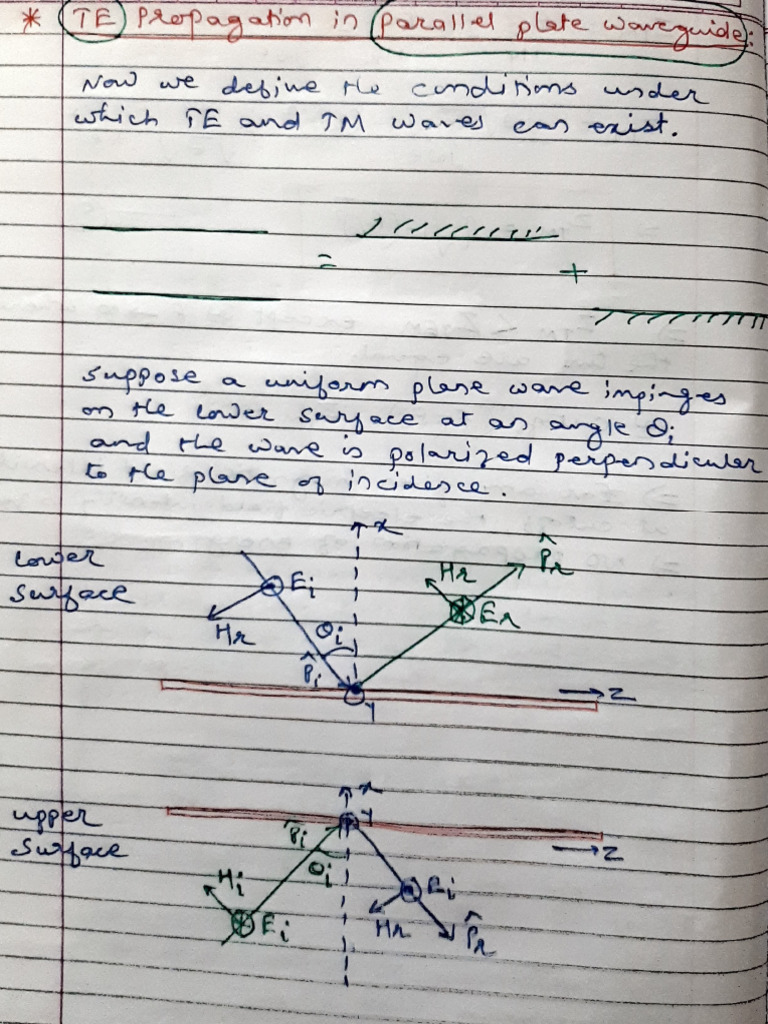 * TE Propagation in parallel plate waveguide:
Now we define the conditions under
which TE and TM waves can exist.
=
+
Suppose a uniform plane wave impinges
on the lower surface at an angle θi
and the wave is polarized perpendicular
to the plane of incidence.
x
Lower
surface
Ei
Hr
P̂r
Hr
Er
θi
P̂i
Y
z
x
upper
surface
Y
z
P̂i
θi
Hi
Ei
Ei
Hr
P̂r